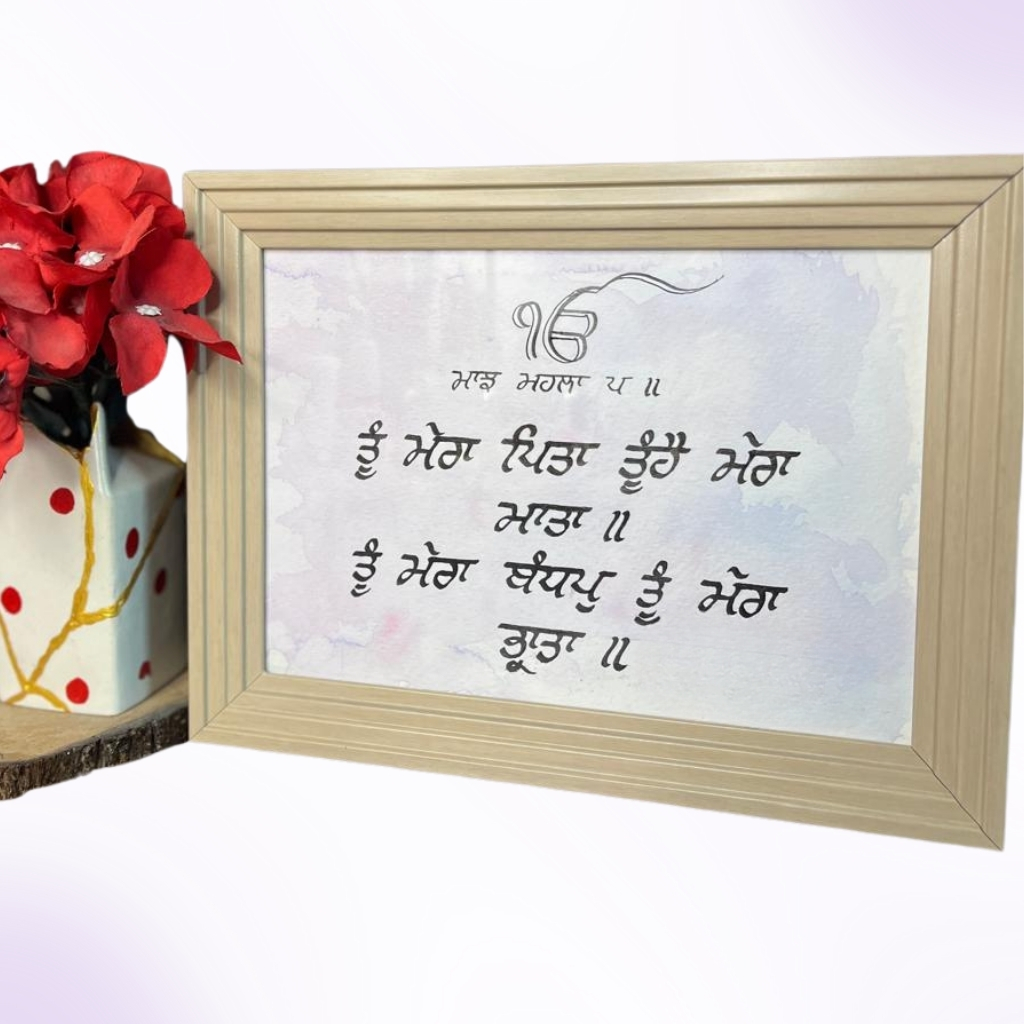 ੴ
ਮਾਝ ਮਹਲਾ ੫ ॥
ਤੂੰ ਮੇਰਾ ਪਿਤਾ ਤੂੰਹੈ ਮੇਰਾ
ਮਾਤਾ ॥
ਤੂੰ ਮੇਰਾ ਬੰਧਪੁ ਤੂੰ ਮੇਰਾ
ਭ੍ਰਾਤਾ ॥